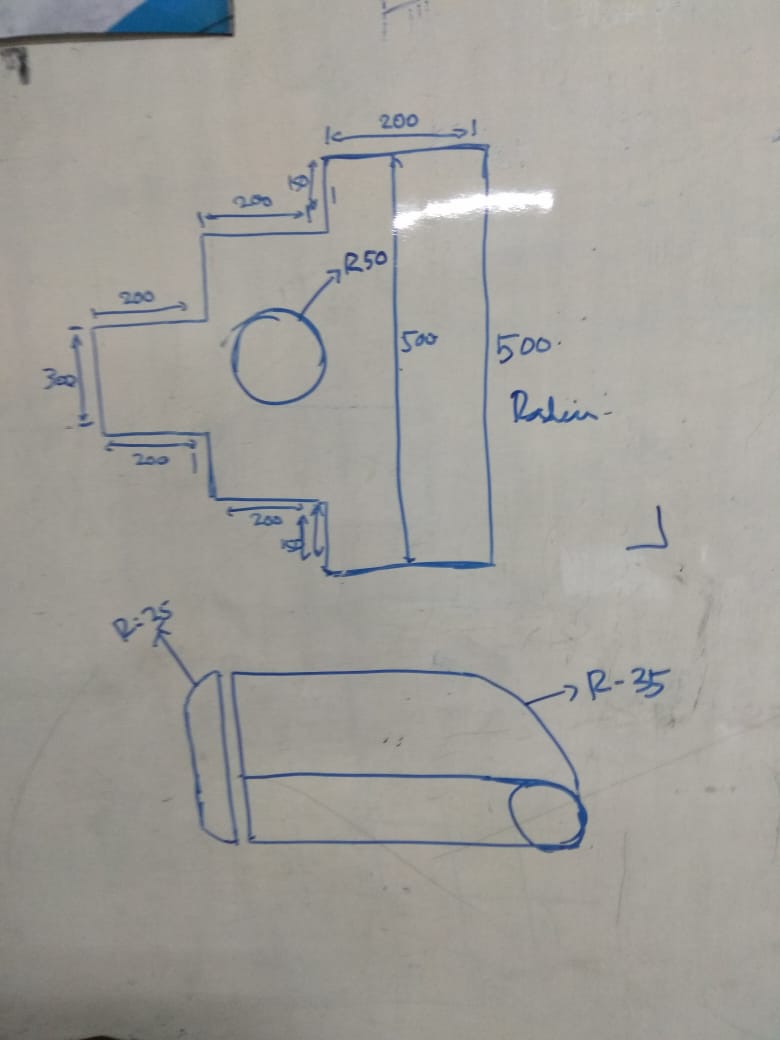 200
150
200
R50
200
500
500
300
200
200
150
R-25
R-35